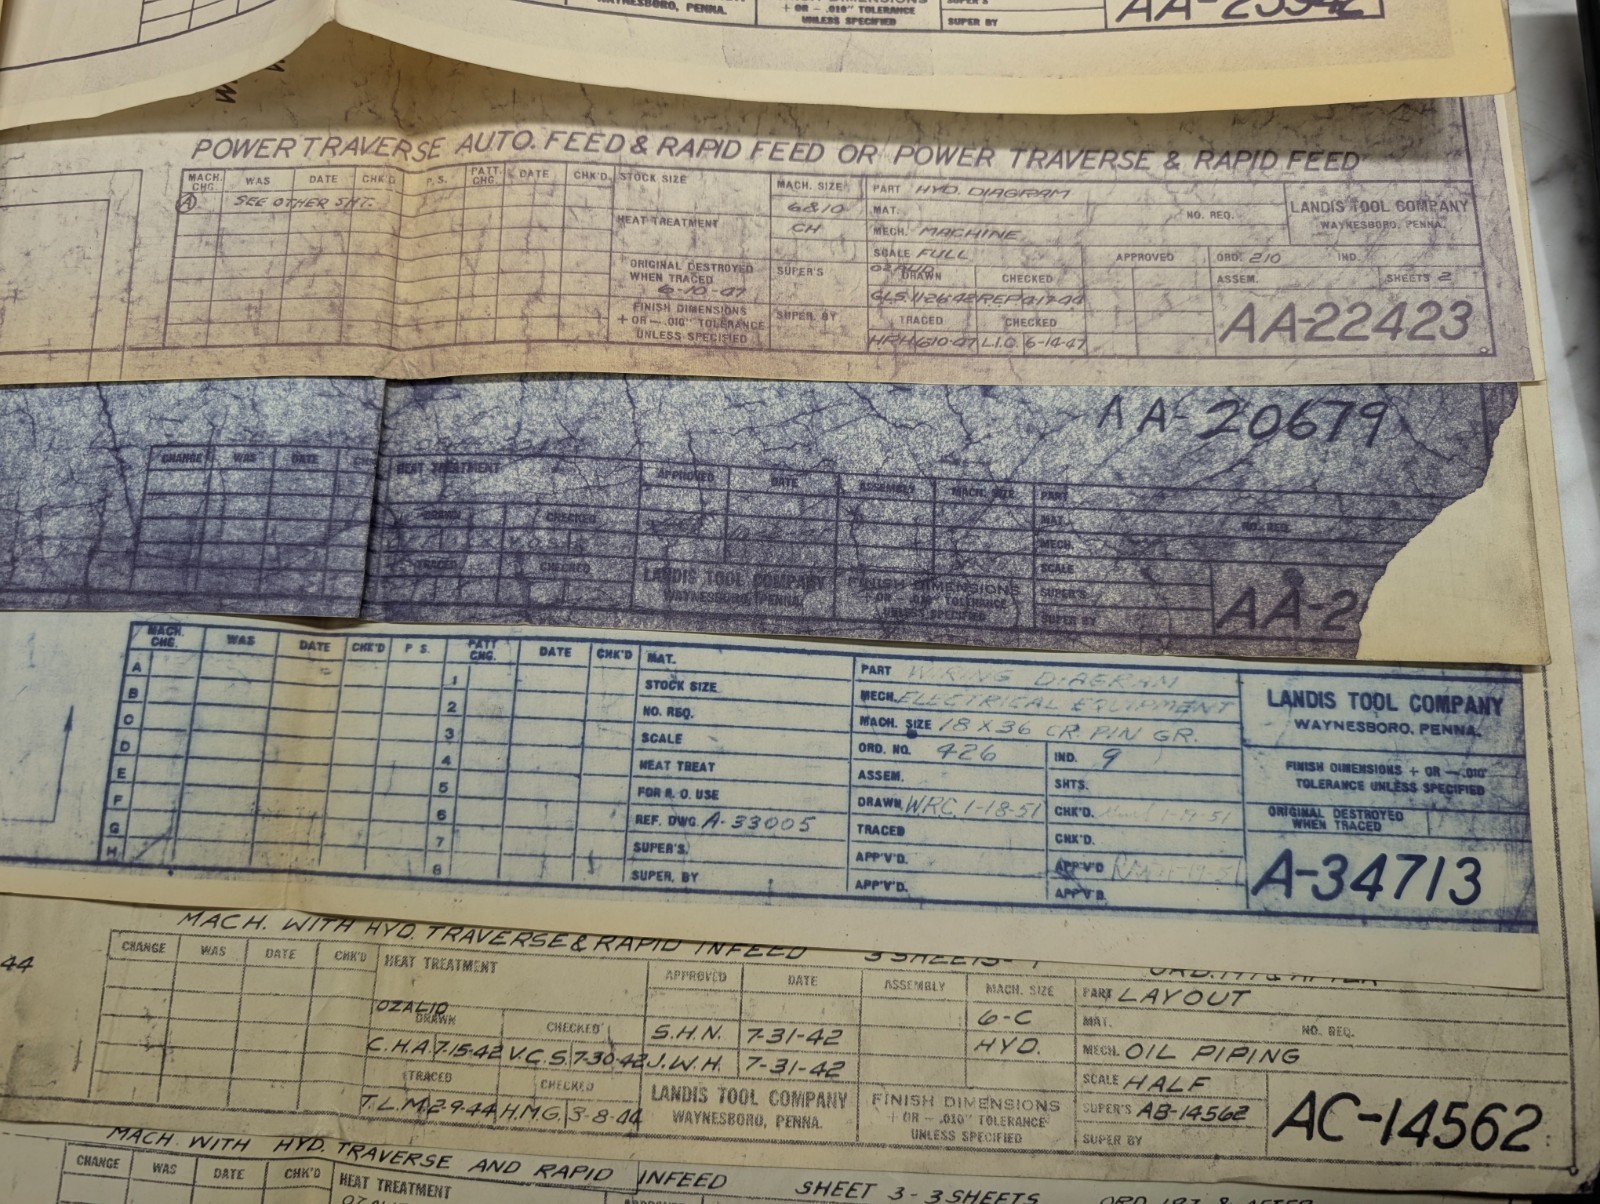 WAYNESBORO, PENNA.
FINISH DIMENSIONS
+ OR - .010" TOLERANCE
UNLESS SPECIFIED
SUPER BY
POWER TRAVERSE AUTO. FEED & RAPID FEED OR POWER TRAVERSE & RAPID FEED
MACH. CHG. WAS DATE CHK'D P.S. PATT. CHG. DATE CHK'D STOCK SIZE
A SEE OTHER SHT.
HEAT TREATMENT
ORIGINAL DESTROYED
WHEN TRACED
6-10-47
FINISH DIMENSIONS
+ OR - .010" TOLERANCE
UNLESS SPECIFIED
MACH. SIZE
6&10
CH
SUPER'S
SUPER. BY
PART HYD. DIAGRAM
MAT. NO. REQ.
MECH. MACHINE
SCALE FULL
OZALID
DRAWN CHECKED
G.L.S. 11-26-42 R.E.P. 4-17-44
TRACED CHECKED
HPH 6-10-47 L.I.O. 6-14-47
APPROVED
LANDIS TOOL COMPANY
WAYNESBORO, PENNA.
ORD. 210 IND.
ASSEM. SHEETS 2
AA-22423
AA-20679
CHANGE WAS DATE
HEAT TREATMENT
DRAWN CHECKED
TRACED CHECKED
APPROVED DATE ASSEMBLY MACH. SIZE
LANDIS TOOL COMPANY
WAYNESBORO, PENNA.
FINISH DIMENSIONS
+ OR - .010" TOLERANCE
UNLESS SPECIFIED
PART
MAT. NO. REQ.
MECH.
SCALE
SUPER'S
SUPER BY
AA-2
MACH. CHG. WAS DATE CHK'D P S. PATT CHG. DATE CHK'D
A 1
B 2
C 3
D 4
E 5
F 6
G 7
H 8
MAT.
STOCK SIZE
NO. REQ.
SCALE
HEAT TREAT
FOR R. O. USE
REF. DWG. A-33005
SUPER'S.
SUPER. BY
PART WIRING DIAGRAM
MECH. ELECTRICAL EQUIPMENT
MACH. SIZE 18 X 36 CR. PIN GR.
ORD. NO. 426 IND. 9
ASSEM. SHTS.
DRAWN WRC 1-18-51 CHK'D.
TRACED CHK'D.
APP'V'D. APP'V'D
APP'V'D. APP'V'D.
LANDIS TOOL COMPANY
WAYNESBORO, PENNA.
FINISH DIMENSIONS + OR - .010"
TOLERANCE UNLESS SPECIFIED
ORIGINAL DESTROYED
WHEN TRACED
A-34713
MACH. WITH HYD. TRAVERSE & RAPID INFEED 3 SHEETS-1
44
CHANGE WAS DATE CHK'D
HEAT TREATMENT
OZALID
DRAWN CHECKED
C.H.A. 7-15-42 V.C.S. 7-30-42
TRACED CHECKED
T.L.M. 2-9-44 H.M.G. 3-8-44
APPROVED DATE ASSEMBLY MACH. SIZE
S.H.N. 7-31-42 6-C
J.W.H. 7-31-42 HYD.
LANDIS TOOL COMPANY
WAYNESBORO, PENNA.
FINISH DIMENSIONS
+ OR - .010" TOLERANCE
UNLESS SPECIFIED
PART LAYOUT
MAT. NO. REQ.
MECH. OIL PIPING
SCALE HALF
SUPER'S AB-14562
SUPER BY
AC-14562
MACH. WITH HYD. TRAVERSE AND RAPID INFEED SHEET 3-3 SHEETS
CHANGE WAS DATE CHK'D HEAT TREATMENT